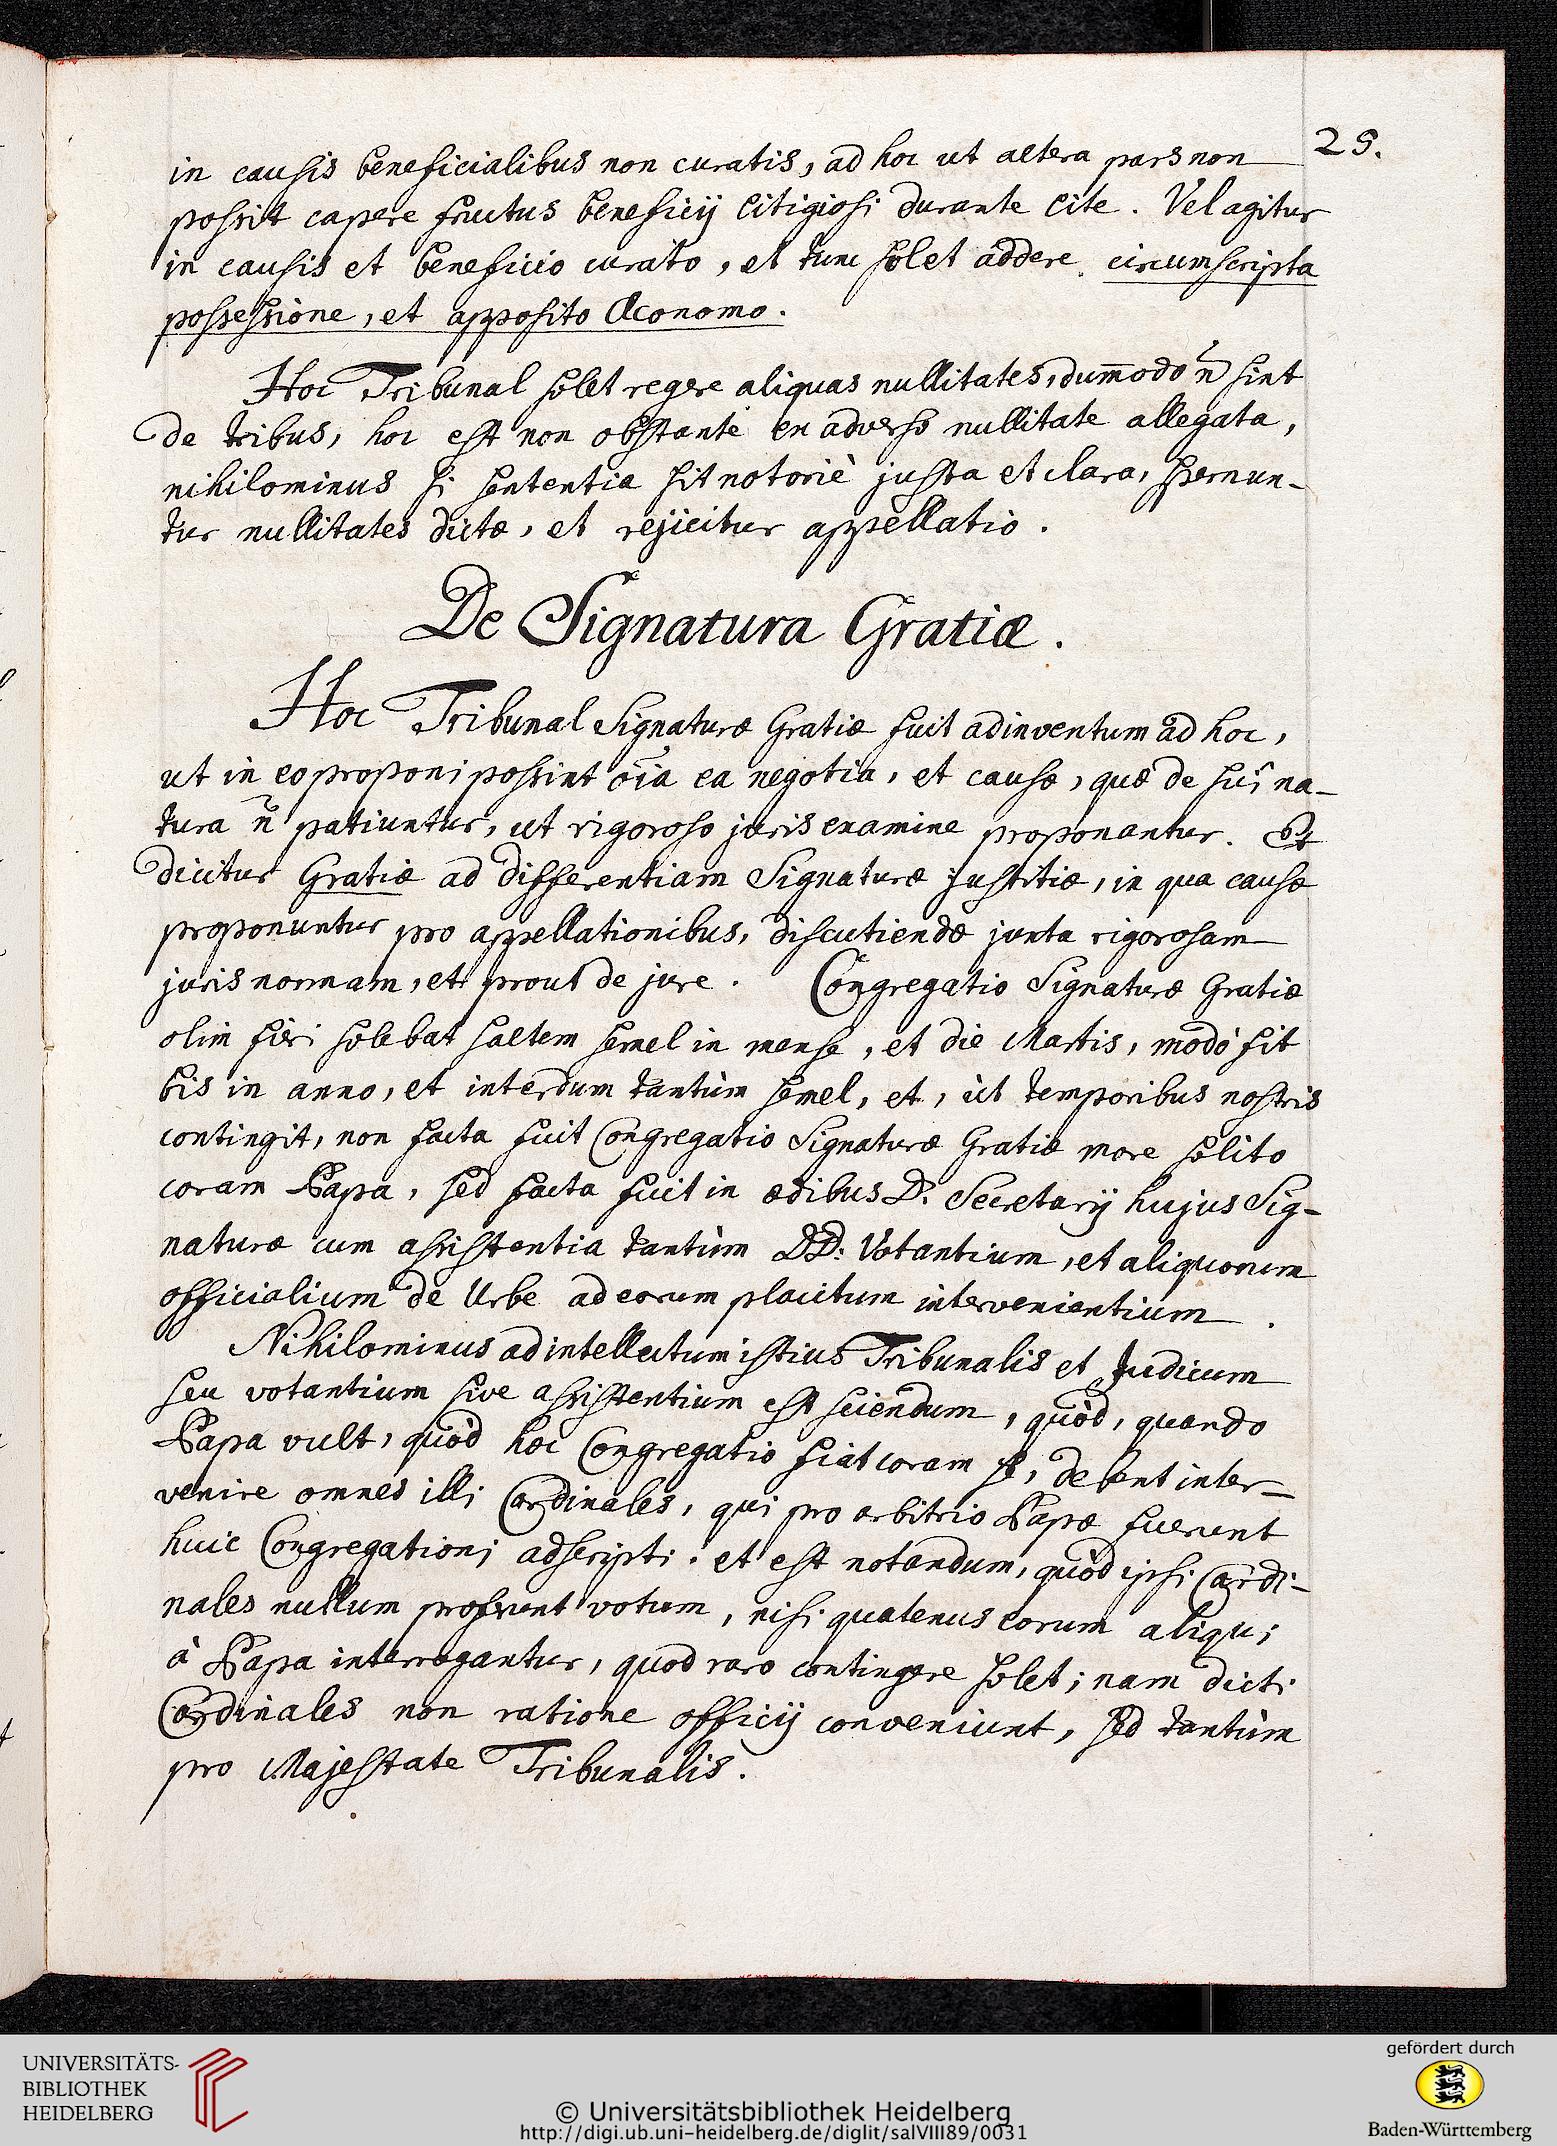 25.
in causis beneficialibus non curatis, ad hoc ut altera pars non
possit capere fructus beneficij litigiosi durante lite. Vel agitur
in causis et beneficio curato, et tunc solet addere circumscripta
possessione, et apposito Œconomo.
Hoc Tribunal solet regere aliquas nullitates, dum̄odo ñ sint
de tribus, hoc est non obstante ex adverso nullitate allegata,
nihilominus si sententia sit notoriè justa et clara, spernun-
tur nullitates dictæ, et rejicitur appellatio.
De Signatura Gratiæ.
Hoc Tribunal Signaturæ Gratiæ fuit adinventum ad hoc,
ut in eo proponi possint oīa ea negotia, et causæ, quæ de suî na-
tura ñ patiuntur, ut rigoroso juris examine proponantur. Et
dicitur Gratiæ ad differentiam Signaturæ justitiæ, in qua causæ
proponuntur pro appellationibus, discutiendæ juxta rigorosam
juris normam, et prout de jure. Congregatio Signaturæ Gratiæ
olim fieri solebat saltem semel in mense, et die Martis, modò fit
bis in anno, et interdum tantùm semel, et, ùt temporibus nostris
contingit, non facta fuit Congregatio Signaturæ Gratiæ more solito
coram Papa, sed facta fuit in ædibus D. Secretarij hujus Sig-
naturæ cum assistentia tantùm DD: Votantium, et aliquorum
officialium de Urbe ad eorum placitum intervenientium.
Nihilominus ad intellectum istius Tribunalis et Judicum
seu votantium sive assistentium est sciendum, quòd, quando
Papa vult, quòd hoc Congregatio fiat coram se, debent inter-
venire omnes illi Cardinales, qui pro arbitrio Papæ fuerunt
huic Congregationi adscripti. et est notandum, quòd ipsi Cardi-
nales nullum proferunt votum, nisi quatenus eorum aliqui
à Papa interrogantur, quod raro contingere solet; nam dicti
Cardinales non ratione officij conveniunt, sed tantùm
pro Majestate Tribunalis.
UNIVERSITÄTS-
BIBLIOTHEK
HEIDELBERG
© Universitätsbibliothek Heidelberg
http://digi.ub.uni-heidelberg.de/diglit/salVIII89/0031
gefördert durch
Baden-Württemberg